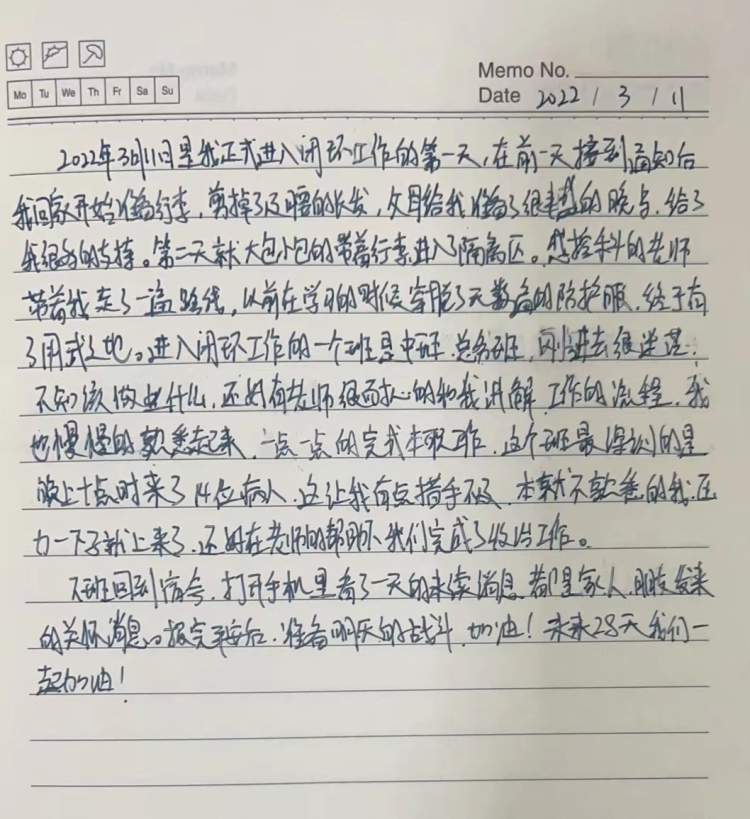 Memo No.
Mo Tu We Th Fr Sa Su
Date 2022 / 3 / 11
2022年3月11日是我正式进入闭环工作的第一天,在前一天接到通知后
我回家开始准备行李,剪掉了及腰的长发,父母给我准备了很丰盛的晚与,给了
我很多的支持。第二天就大包小包的带着行李进入了隔离区。感控科的老师
带着我走了一遍路线,以前在学习的时候穿脱了无数遍的防护服,终于有
了用武之地。进入闭环工作的一个班是中班总务班,刚进去很迷茫,
不知该做些什么,还好有老师很耐心的和我讲解工作的流程,我
也慢慢的熟悉起来,一点一点的完成本职工作,这个班最深刻的是
晚上十点时来了14位病人,这让我有点措手不及,本就不熟悉的我,压
力一下子就上来了,还好在老师的帮助下我们完成了收治工作。
下班回到宿舍,打开手机里看了一天的未读消息,都是家人,朋友发来
的关怀消息。报完平安后,准备明天的战斗,加油!未来28天我们一
起加油!